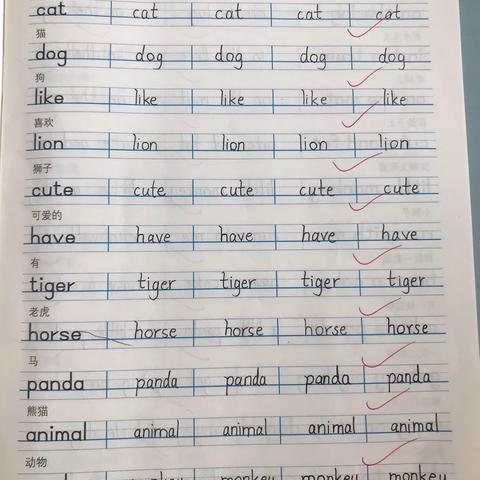 cat cat cat cat cat
猫
dog dog dog dog dog
狗
like like like like like
喜欢
lion lion lion lion lion
狮子
cute cute cute cute cute
可爱的
have have have have have
有
tiger tiger tiger tiger tiger
老虎
horse horse horse horse horse
马
panda panda panda panda panda
熊猫
animal animal animal animal animal
动物
monkey monkey monkey